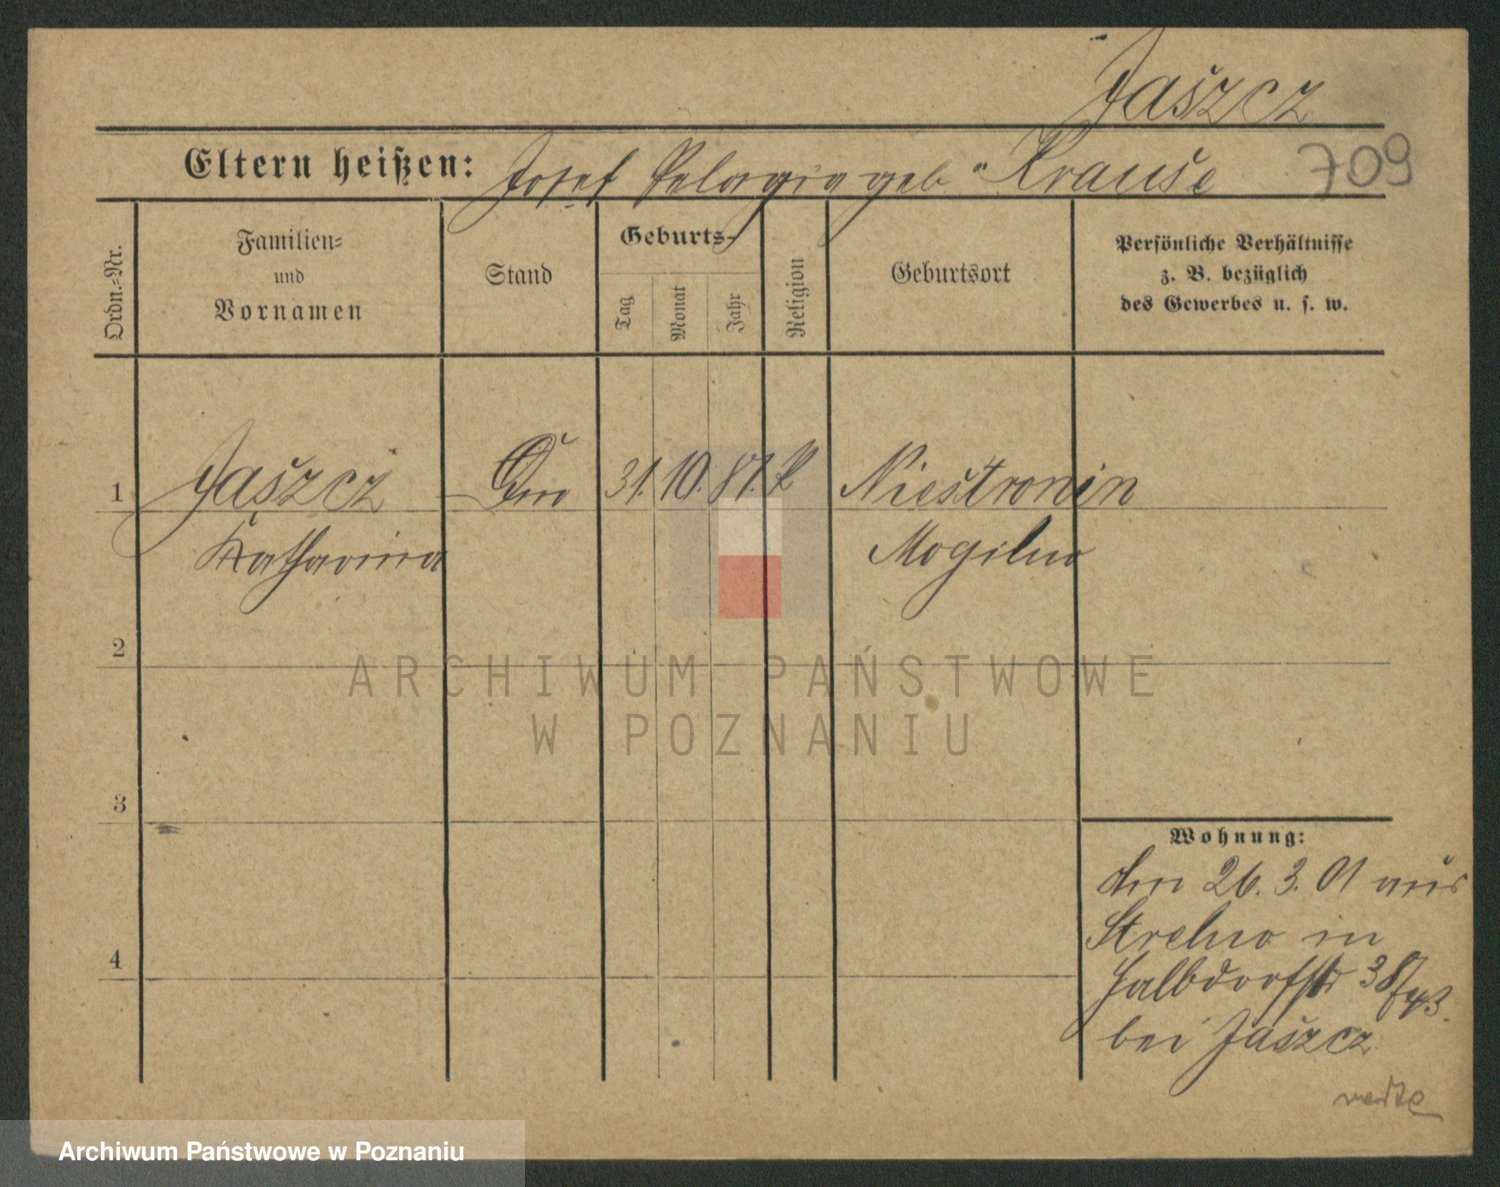 Jaszcz
Eltern heißen: Josef Pelagia geb. Krause 709
Ordn.-Nr.
Familien-
und
Vornamen
Stand
Geburts-
Tag
Monat
Jahr
Religion
Geburtsort
Persönliche Verhältnisse
z. B. bezüglich
des Gewerbes u. s. w.
1 Jaszcz 31. 10. 81. k Niestronin
Katharina Mogilno
2
ARCHIWUM PAŃSTWOWE
W POZNANIU
3
Wohnung:
den 26. 3. 01 aus
Strelno in
Halbdorfstr 38
4
bei Jaszcz
Archiwum Państwowe w Poznaniu